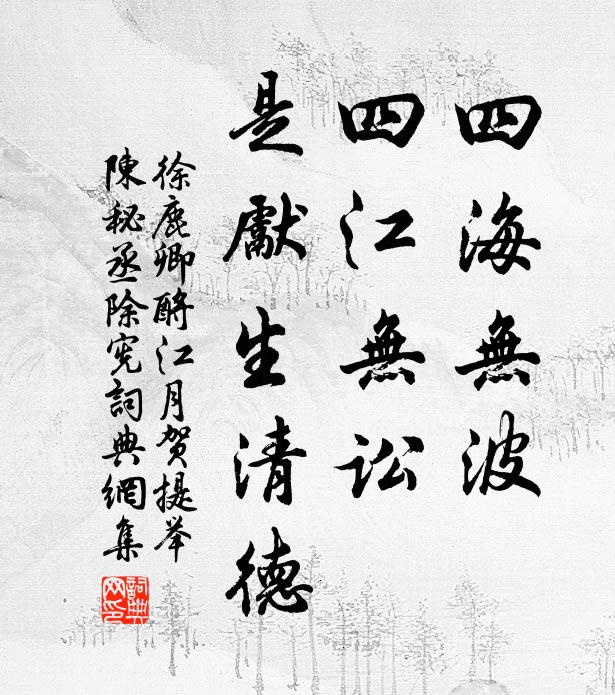 四海無波
四江無訟
是獻生清德
徐鹿卿酹江月賀提举
陳秘丞除宪詞典網集
詞典